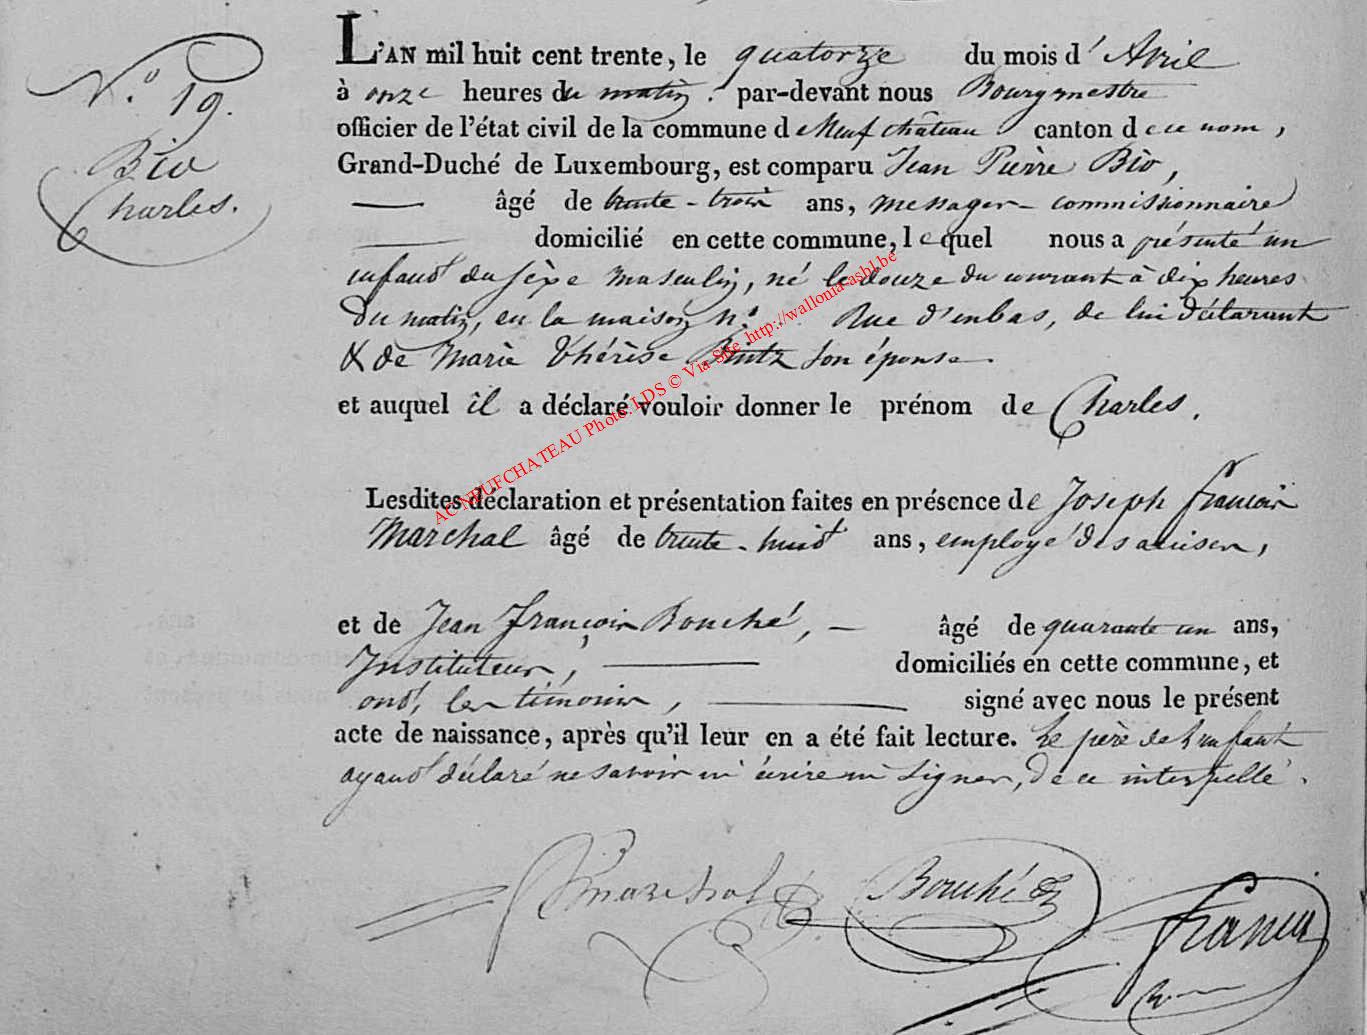 N.° 19.
Bio
Charles.
L'AN mil huit cent trente, le quatorze du mois d' Avril
à onze heures du matin. par-devant nous Bourgmestre
officier de l'état civil de la commune de Neufchâteau canton de ce nom,
Grand-Duché de Luxembourg, est comparu Jean Pierre Bio,
âgé de trente-trois ans, messager-commissionnaire
domicilié en cette commune, lequel nous a présenté un
enfant du séxe masculin, né le douze du courant à dix heures
du matin, en la maison n.° Rue d'enbas, de lui déclarant
& de Marie Thérèse son épouse.
et auquel il a déclaré vouloir donner le prénom de Charles.
Lesdites déclaration et présentation faites en présence de Joseph françois
Marchal âgé de trente-huit ans, employé des accises,
et de Jean françois Bouché, — âgé de quarante un ans,
Instituteur, domiciliés en cette commune, et
ont, les témoins, signé avec nous le présent
acte de naissance, après qu'il leur en a été fait lecture. Le père de l'enfant
ayant déclaré ne savoir ni écrire ni signer, de ce interpellé.
Marchal Bouché
AC NEUFCHATEAU Photo: LDS © Via Site http://wallonia-asbl.be